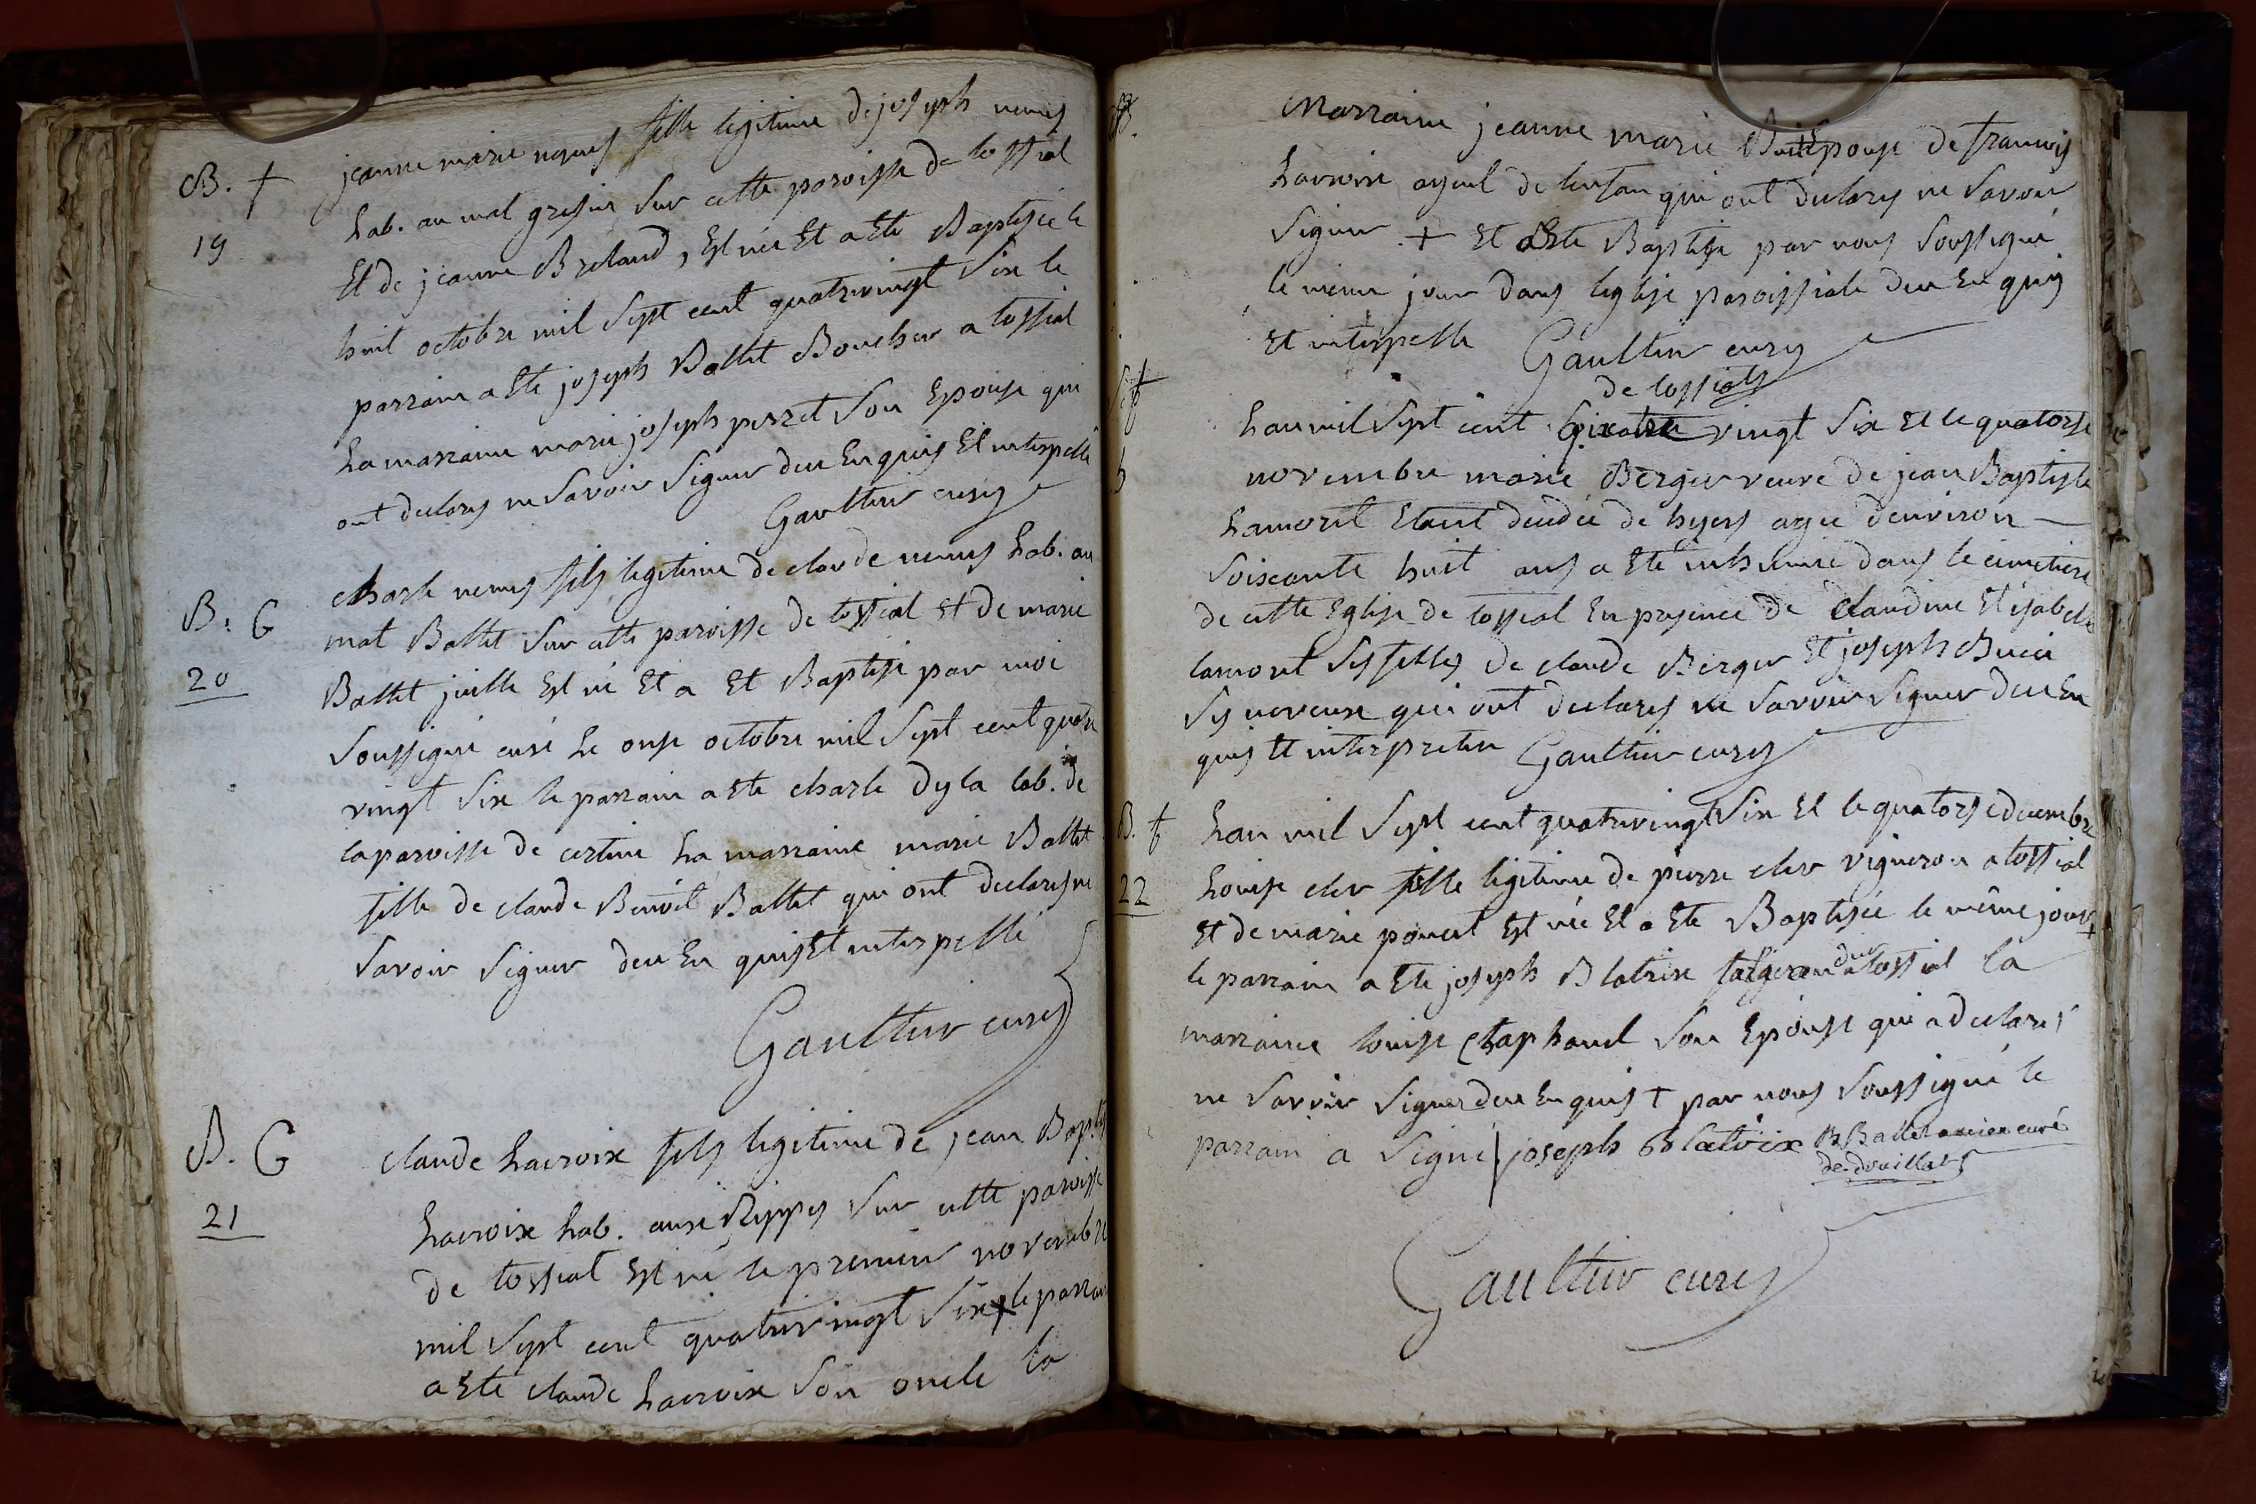 B. f
19
jeanne marie nemes fille legitime de joseph nemes
hab. au mat gresin sur cette paroisse de tossiat
Et de jeanne Breland, Est née Et a Ete Baptisée le
huit octobre mil sept cent quatrevingt six le
parrain a Ete joseph Ballet Boucher a tossiat
La marraine marie joseph perret son Epouse qui
ont declares ne savoir signer deu Enquis Et interpellé
Gaultier curé
B. G
20
charle nemes fils legitime de claude nemes hab. au
mat Ballet sur cette paroisse de tossiat Et de marie
Ballet jeille Est né Et a Et Baptisé par moi
soussigné curé Le onse octobre mil sept cent quatre
vingt six le parrain a Ete charle dyla lab. de
la paroisse de certine La marraine marie Ballet
fille de claude Benoit Ballet qui ont declares ne
savoir signer deu En quis Et interpellé
Gaultier curé
B. G
21
claude Lacroix fils legitime de jean Bapt
Lacroix hab. aux Rippes sur cette paroisse
de tossiat Est né le premier novembre
mil sept cent quatrevingt six + le parrain
a Ete claude Lacroix son oncle la
Marraine jeanne marie Epouse de francois
Lacroix ayeul de lenfan qui ont declares ne savoir
signer + Et a Ete Baptisé par nous soussigné
le meme jour dans leglise paroissiale deu Enquis
Et interpellé Gaultier curé
de tossiat
Lan mil sept cent quatre vingt six Et le quatorse
novembre marie Berger veuve de jean Baptiste
Lamorel Etant decedée de hyers agée denviron
soixante huit ans a Ete inhumée dans le cimetiere
de cette Eglise de tossiat En presence de claudine Et isabelle
lamorel ses filles de claude Berger Et joseph Buei
ses neveux qui ont declares ne savoir signer deu En
quis Et interpreter Gaultier curé
B. f
22
Lan mil sept cent quatrevingt six Et le quatorse decembre
Louise cler fille legitime de pierre cler vigneron a tossiat
Et de marie poncet Est née Et a Ete Baptisée le même jour +
le parrain a Ete joseph Blatrix a tossiat la
marraine louise Chaphard son Epouse qui a declaré
ne savoir signer deu Enquis + par nous soussigné le
parrain a signé joseph Blatrix B Ballet ancien curé
de druillat
Gaultier curé